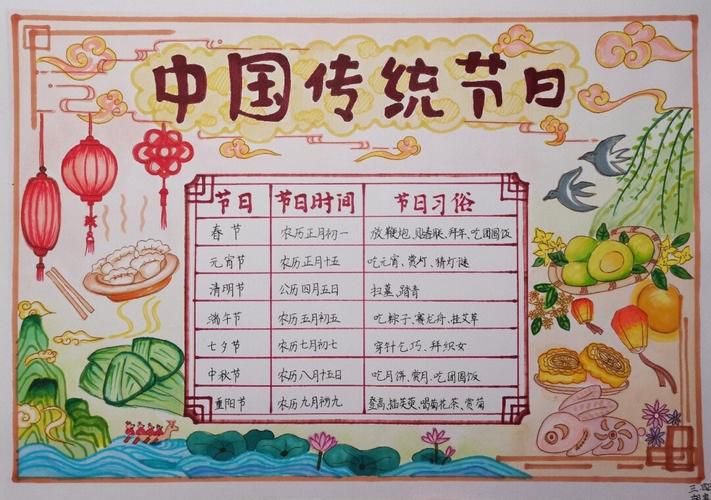 中国传统节日
节日 节日时间 节日习俗
春节 农历正月初一 放鞭炮、贴春联、拜年、吃团圆饭
元宵节 农历正月十五 吃元宵、赏灯、猜灯谜
清明节 公历四月五日 扫墓、踏青
端午节 农历五月初五 吃粽子、赛龙舟、挂艾草
七夕节 农历七月初七 穿针乞巧、拜织女
中秋节 农历八月十五日 吃月饼、赏月、吃团圆饭
重阳节 农历九月初九 登高、插茱萸、喝菊花茶、赏菊